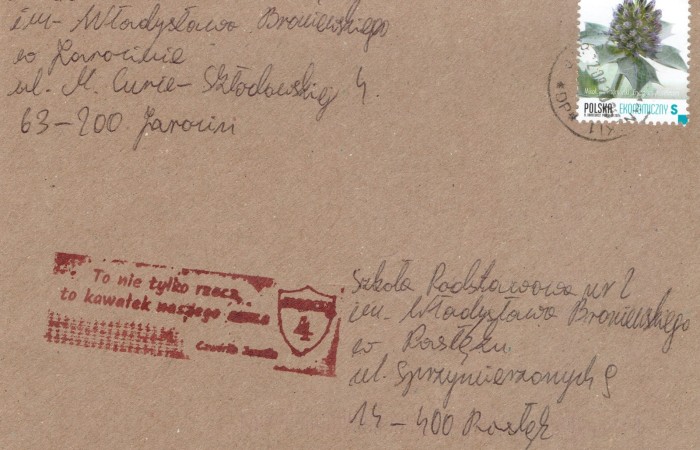 im. Władysława Broniewskiego
w Jarocinie
ul. M. Curie-Skłodowskiej 4.
63-200. Jarocin
POLSKA EKONOMICZNY S
To nie tylko rzecz,
to kawałek naszego
4
Czwórka
Szkoła Podstawowa nr 2
im. Władysława Broniewskiego
w Pasłęku
ul. Sprzymierzonych 9
14-400 Pasłęk